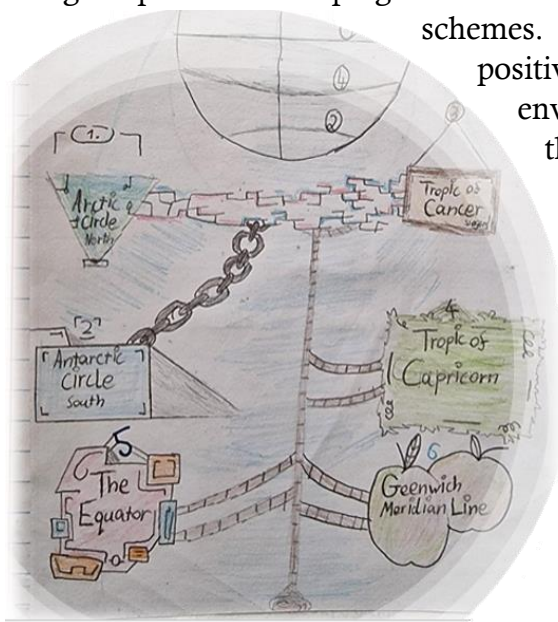 schemes.
④
②
③
1.
Arctic
Circle
North
Tropic of
Cancer
"2"
Antarctic
Circle
South
4
Tropic of
Capricorn
5
The
Equator
6
Geenwich
Meridian Line